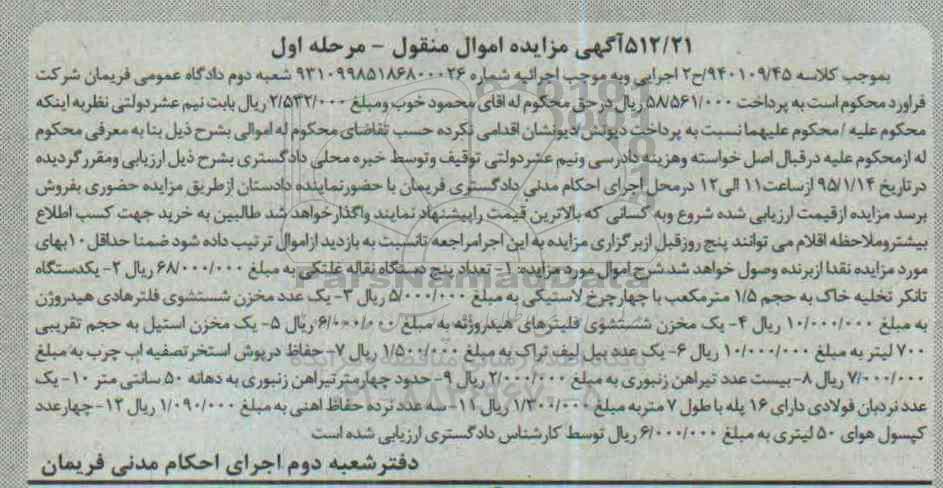 ۵۱۲/۲۱آگهی مزایده اموال منقول - مرحله اول
بموجب کلاسه ۹۴۰۱۰۹/۴۵/ح۲ اجرایی وبه موجب اجرائیه شماره ۹۳۱۰۹۹۸۵۱۸۶۸۰۰۰۲۶ شعبه دوم دادگاه عمومی فریمان شرکت
فراورد محکوم است به پرداخت ۵۸/۵۶۱/۰۰۰ ریال درحق محکوم له اقای محمود خوب ومبلغ ۲/۵۳۲/۰۰۰ ریال بابت نیم عشردولتی نظربه اینکه
محکوم علیه /محکوم علیهما نسبت به پرداخت دیونش/دیونشان اقدامی نکرده حسب تقاضای محکوم له اموالی بشرح ذیل بنا به معرفی محکوم
له ازمحکوم علیه درقبال اصل خواسته وهزینه دادرسی ونیم عشردولتی توقیف وتوسط خبره محلی دادگستری بشرح ذیل ارزیابی ومقررگردیده
درتاریخ ۹۵/۱/۱۴ ازساعت۱۱ الی۱۲ درمحل اجرای احکام مدنی دادگستری فریمان با حضورنماینده دادستان ازطریق مزایده حضوری بفروش
برسد مزایده ازقیمت ارزیابی شده شروع وبه کسانی که بالاترین قیمت راپیشنهاد نمایند واگذارخواهد شد طالبین به خرید جهت کسب اطلاع
بیشتروملاحظه اقلام می توانند پنج روزقبل ازبرگزاری مزایده به این اجرامراجعه تانسبت به بازدید ازاموال ترتیب داده شود ضمنا حداقل۱۰بهای
مورد مزایده نقدا ازبرنده وصول خواهد شد.شرح اموال مورد مزایده: ۱- تعداد پنج دستگاه نقاله غلتکی به مبلغ ۶۸/۰۰۰/۰۰۰ ریال ۲- یکدستگاه
تانکر تخلیه خاک به حجم ۱/۵ مترمکعب با چهارچرخ لاستیکی به مبلغ ۵/۰۰۰/۰۰۰ ریال ۳- یک عدد مخزن شستشوی فلترهادی هیدروژن
به مبلغ ۱۰/۰۰۰/۰۰۰ ریال ۴- یک مخزن شستشوی فلیترهای هیدروژنه به مبلغ ۶/۰۰۰/۰۰۰ریال ۵- یک مخزن استیل به حجم تقریبی
۷۰۰ لیتر به مبلغ ۱۰/۰۰۰/۰۰۰ ریال ۶- یک عدد بیل لیف تراک به مبلغ ۱/۵۰۰/۰۰۰ ریال ۷- حفاظ درپوش استخرتصفیه اب چرب به مبلغ
۷/۰۰۰/۰۰۰ ریال ۸- بیست عدد تیراهن زنبوری به مبلغ ۲/۰۰۰/۰۰۰ ریال ۹- حدود چهارمترتیراهن زنبوری به دهانه ۵۰ سانتی متر ۱۰- یک
عدد نردبان فولادی دارای ۱۶ پله با طول ۷ متربه مبلغ ۱/۳۰۰/۰۰۰ ریال ۱۱- سه عدد نرده حفاظ اهنی به مبلغ ۱/۰۹۰/۰۰۰ ریال ۱۲- چهارعدد
کپسول هوای ۵۰ لیتری به مبلغ ۶/۰۰۰/۰۰۰ ریال توسط کارشناس دادگستری ارزیابی شده است
دفترشعبه دوم اجرای احکام مدنی فریمان
ParsNamadData